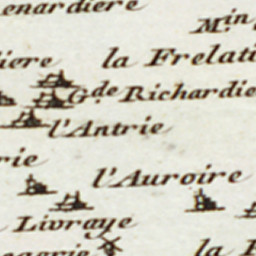 enardiere
M.in
iere la Frelati
G.de Richardie
l'Antrie
rie
l'Auroire
Livraye
la